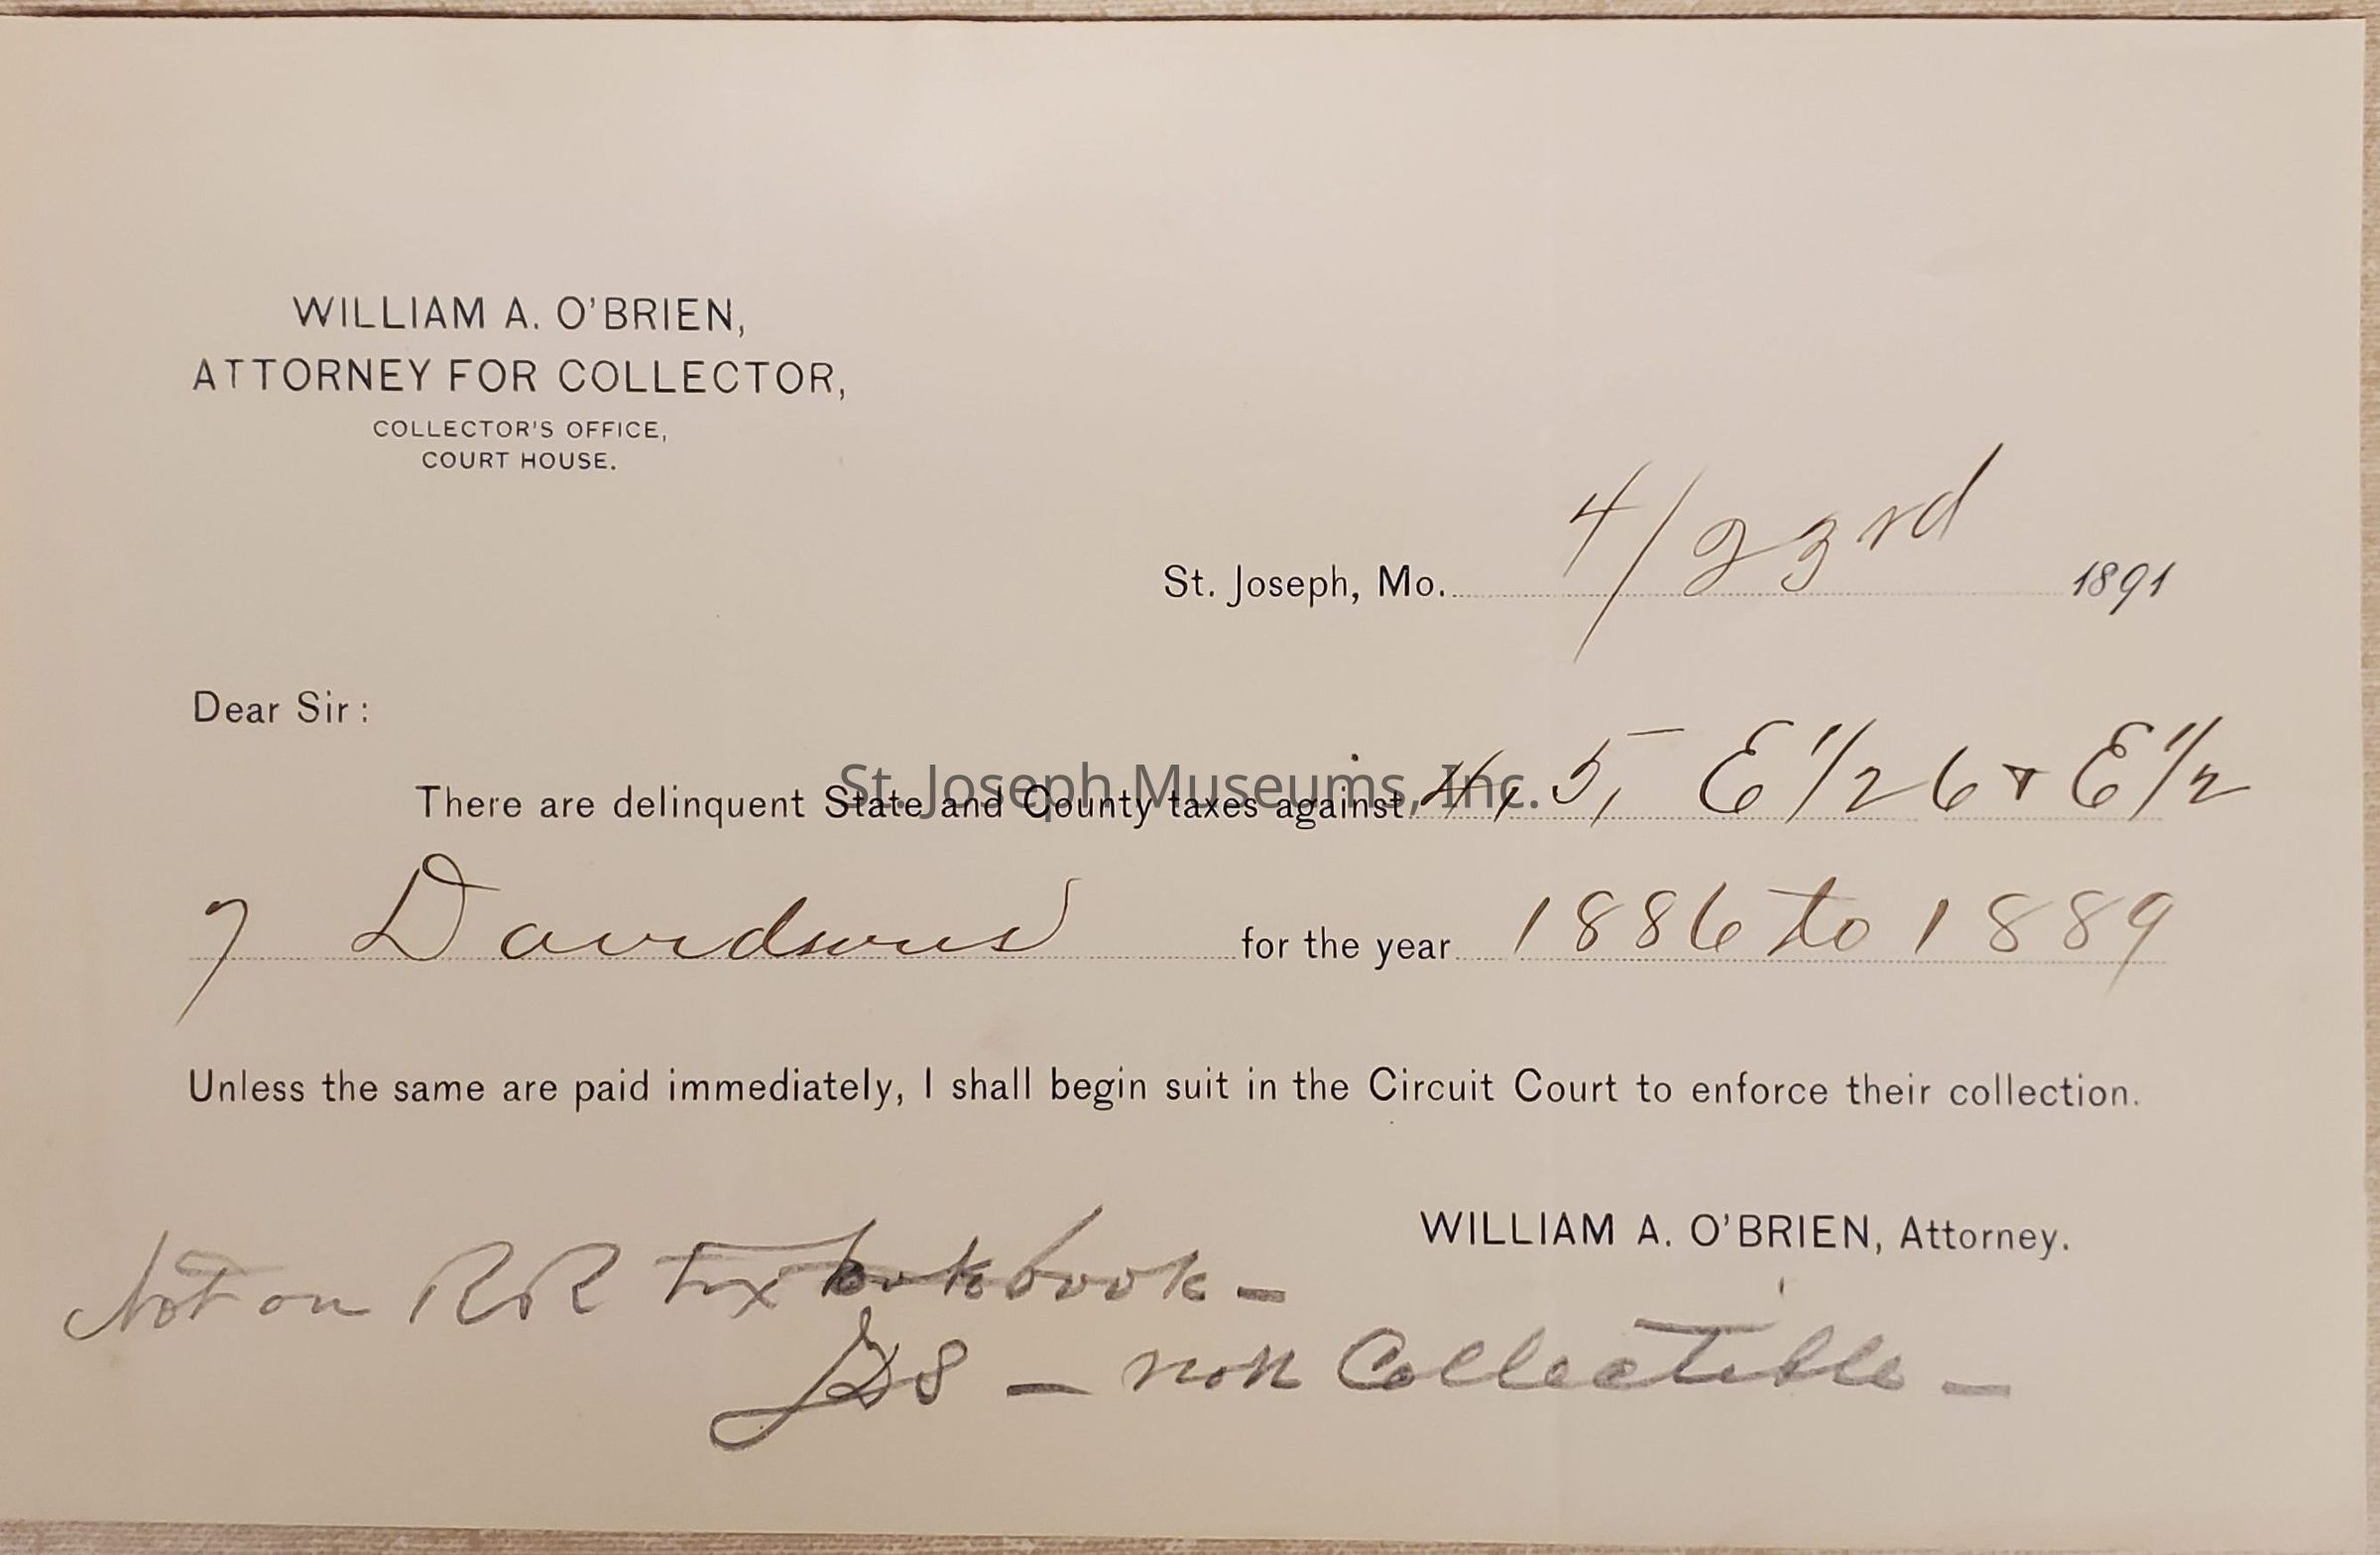 WILLIAM A. O'BRIEN,
ATTORNEY FOR COLLECTOR,
COLLECTOR'S OFFICE,
COURT HOUSE.
St. Joseph, Mo. 4/23rd 1891
Dear Sir:
There are delinquent State and County taxes against 4, 5, E 1/2 6 & E 1/2
St. Joseph Museums, Inc.
7 Davidsons for the year 1886 to 1889
Unless the same are paid immediately, I shall begin suit in the Circuit Court to enforce their collection.
WILLIAM A. O'BRIEN, Attorney.
Not on RR tax book –
– non Collectible –